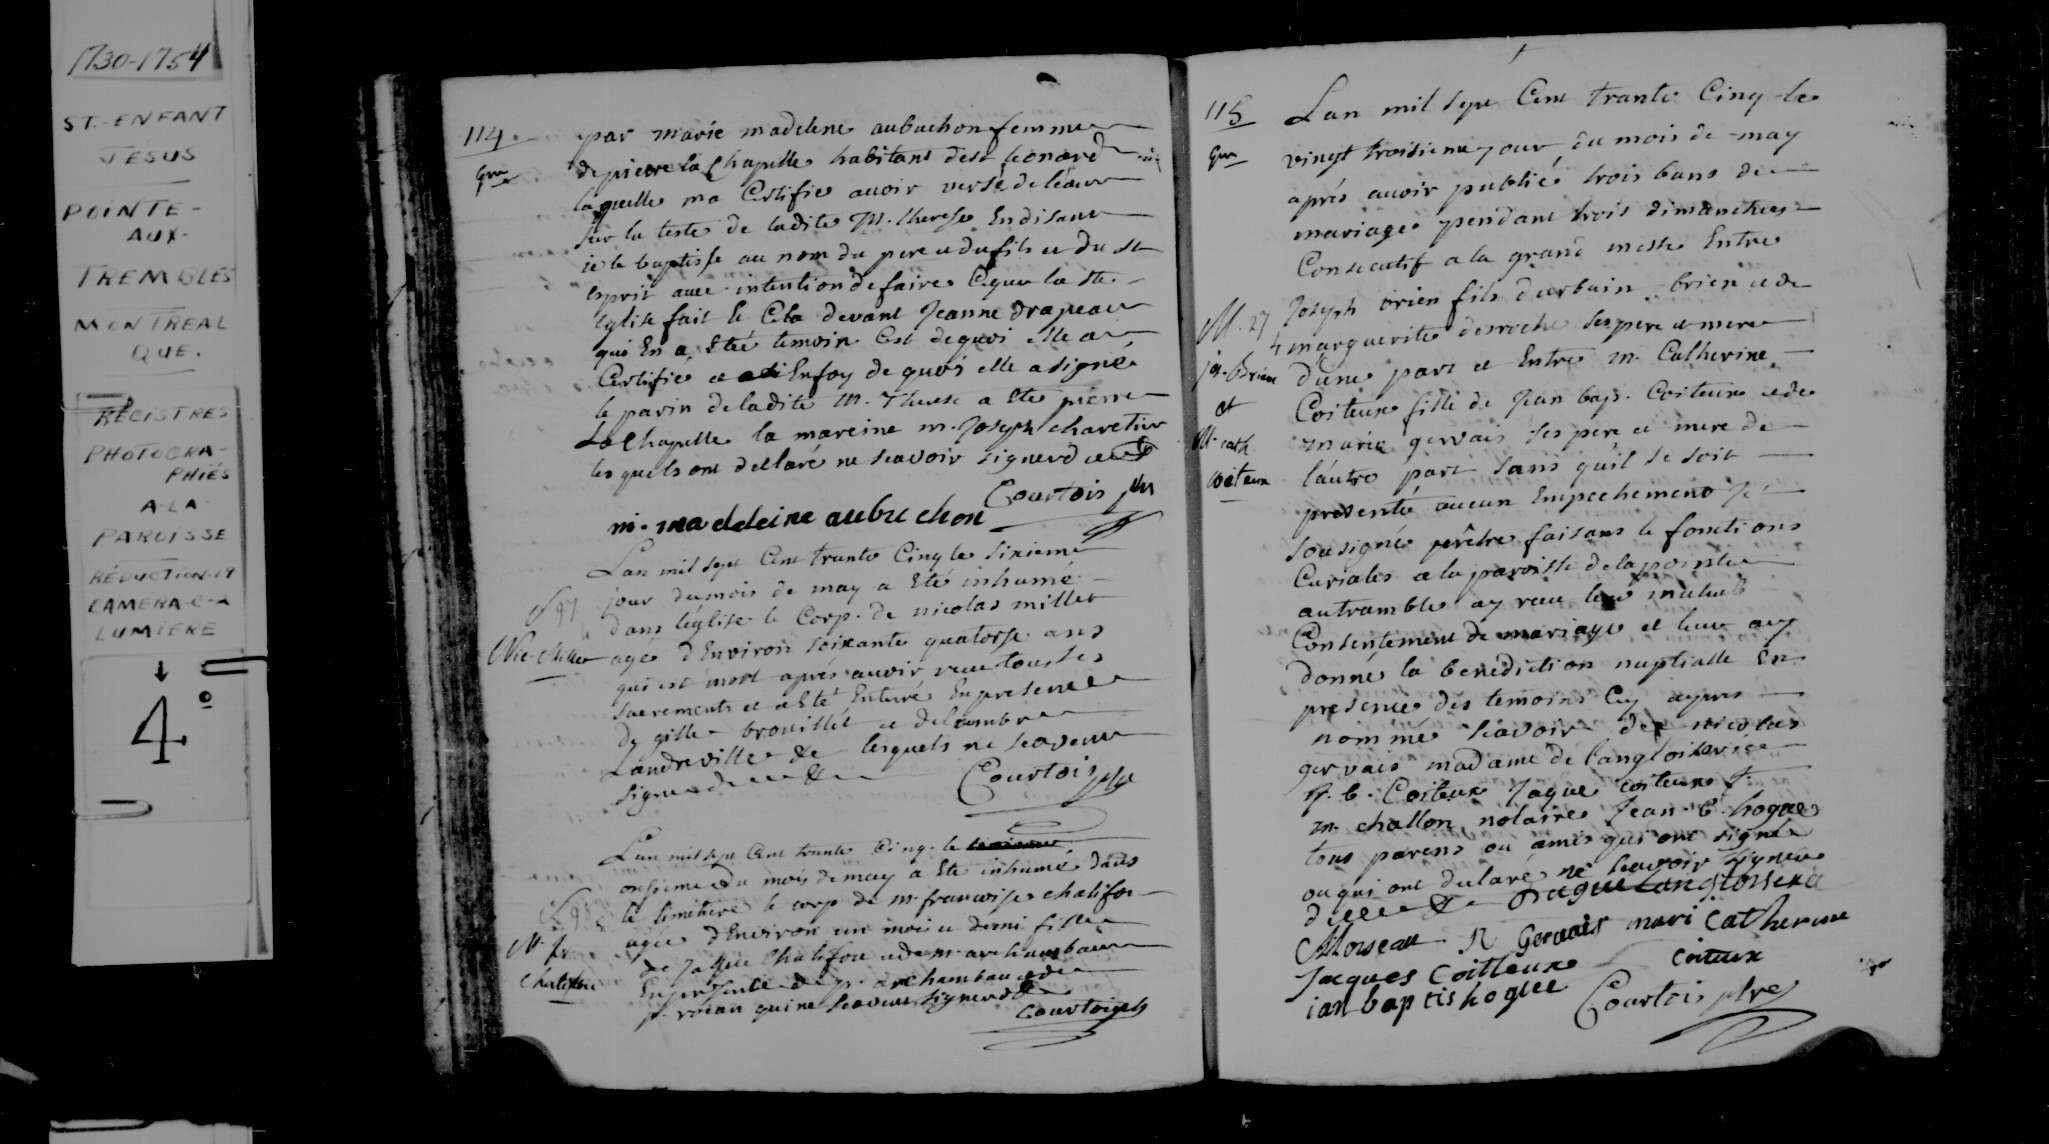 1730-1754
ST-ENFANT
JÉSUS
POINTE-
AUX-
TREMBLES
MONTREAL
QUE.
REGISTRES
PHOTOGRA-
PHIÉS
A-LA-
PAROISSE
RÉDUCTION-19
CAMERA-C-2
LUMIERE
4°
114
par marie madelene aubuchon femme
de pierre la Chapelle habitant de st Leonard
laquelle ma Certifie avoir versé de leau
sur la teste de ladite M. therese En disant
ie te baptisse au nom du pere et du fils et du st
esprit avec intention de faire Ceque la ste
Eglise fait le Cela devant Jeanne drapeau
qui En a Eté temoin Cest de quoi elle a
Certifie et En foy de quoi elle a signé
le parin de ladite M. Therese a Ete pierre
La Chapelle la mareine m. Joseph charetier
lesquels ont declaré ne scavoir signer d
Courtois ptre
m. madeleine aubuchon
Lan mil sept Cent trante Cinq le sixieme
jour du mois de may a Eté inhumé
dans léglise le Corp. de nicolas millet
Nic. Millet
age d'Environ soixante quatorse ans
qui est mort aprés avoir receu tous ses
sacrements et a Eté Enterré En presence
de gille brouillet et delambre
Landreville &c lesquels ne scavent
signer d
Courtois ptre
Lan mil sept Cent trante Cinq. le
onsieme du mois de may a Ete inhumé dans
le simetiere le corp de m. francoise chalifou
M. fr.
Chalifou
agée d'Environ un mois et demi fille
de Jaque Chalifou et de m. archambau
En presence de p. archambau et de
p. rocan qui ne scavent signer d
Courtois ptre
115
Lan mil sept Cent trante Cinq le
vingt troisieme jour du mois de may
aprés avoir publié trois bans de
mariage pendant trois dimanches
Consecutif a la grand messe Entre
M. 27
Jos. Brien
et
M. cath.
Coiteux
Joseph brien fils d'urbain brien et de
marguerite desroche ses pere et mere
dune part et Entre m. Catherine
Coiteux fille de Jean bap. Coiteux et de
marie gervais ses pere et mere de
lautre part sans quil se soit
presenté aucun Empechement Je
sousigné prêtre faisans le fonctions
Curiales a la paroisse de la pointe
autramble ay receu leur mutuel
Consentement de mariage et leur ay
donné la benediction nuptialle En
presence des temoins Cy apres
nommé scavoir de nicolas
gervais madame de langloiserie
J. b. Coiteux Jaque coiteux
m. challon notaire Jean. b. hogue
tous parens ou amis qui ont signé
ou qui ont declaré ne scavoir signer
d
N Gervais mari Catherine
Coiteux
Jacques Coitteux
ian baptis hogue
Courtois ptre